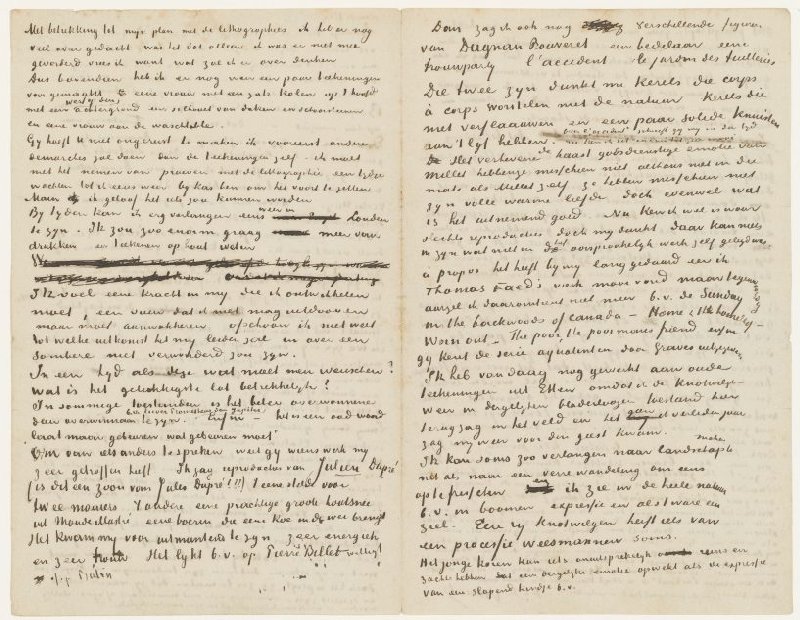 Met betrekking tot mijn plan met de lithographies ik heb er nog
veel over gedacht
geworden vrees ik want wat zal ik er over denken
Dus bovendien heb ik er nog weer een paar teekeningen
voor gemaakt eene vrouw met een zak kolen op 't hoofd
met een achtergrond een silhouet van daken en schoorsteenen
en eene vrouw aan de waschtobbe.
Gij hoeft U niet ongerust te maken ik vooreerst andere
demarches zal doen dan de teekeningen zelf. ik moet
met het nemen van proeven met de lithographie een tijdje
wachten tot ik eens weer bij kas ben om het voort te zetten
Maar ik geloof het iets zou kunnen worden
weer in
Bij tijden kan ik erg verlangen eens Londen
te zijn. Ik zou zoo enorm graag meer van
drukken en teekenen op hout weten
Ik voel eene kracht in mij die ik ontwikkelen
moet, een vuur dat ik niet mag uitdooven
maar moet aanwakkeren ofschoon ik niet weet
tot welke uitkomst het mij leiden zal en over een
sombere niet verwonderd zou zijn.
In een tijd als deze wat moet men wenschen?
wat is het gelukkigste lot betrekkelijk?
In sommige toestanden is het beter overwonnene
dan overwinnaar te zijn. Enfin – het is een oud woord
laat maar gebeuren wat gebeuren moet
Om van iets anders te spreken weet gij wiens werk mij
zeer getroffen heeft Ik zag reproducties van Julien Dupré
(is dit een zoon van Jules Dupré!!!) Eene stelde voor
twee maaiers. 't andere eene prachtige groote houtsnee
uit Monde Illustré eene boerin die eene koe in de wei brengt
Het kwam mij voor uitmuntend te zijn zeer energiek
en zeer trouw Het lijkt b.v. op Pierre Billet
of op Butin
Dan zag ik ook nog verschillende figuren
van Dagnan Bouveret een bedelaar eene
trouwpartij l'accident le jardin des tuileries
Die twee zijn dunkt me kerels die corps
à corps worstelen met de natuur kerels die
niet verflaauwen en een paar solide knuisten
aan 't lijf hebben.
Het verhevene de haast godsdienstige emotie van
Millet hebben ze misschien niet althans niet in die
mate als Millet zelf ze hebben misschien niet
zijn volle warme liefde doch evenwel wat
is het uitnemend goed. Nu ken ik wel is waar
slechts reproducties doch mij dunkt daar kan niets
in zijn wat niet in het oorspronkelijk werk zelf
a propos het heeft bij mij lang geduurd eer ik
Thomas Faed's werk mooi vond maar tegenwoordig
aarzel ik daaromtrent niet meer b.v. de Sunday
in the backwoods of Canada – Home & the homeless –
Worn out – The poor, the poor mans friend enfin
gij kent de serie uitgegeven door Graves
Ik heb vandaag nog gewerkt aan oude
teekeningen uit Etten omdat ik de knotwil-
gen in dergelijken bladerloozen toestand hier
terug zag in het veld en het verleden jaar
zag mij weer voor den geest kwam.
Ik kan soms zoo verlangen naar landschap te maken
net als naar een verre wandeling om eens
op te frisschen en ik zie in de heele natuur
b.v. in boomen expressie en als 't ware een
ziel. Een rij knotwilgen heeft iets van
een processie weesmannen soms.
Het jonge koren kan iets onuitsprekelijk reins en
zachts hebben dat een dergelijke emotie opwekt als de expressie
van een slapend kindje b.v.